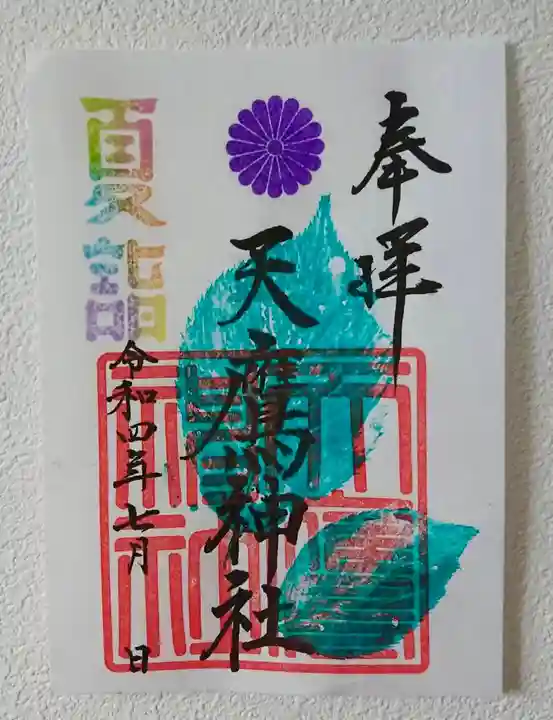 奉拝
天鷹神社
夏詣
令和四年七月 日